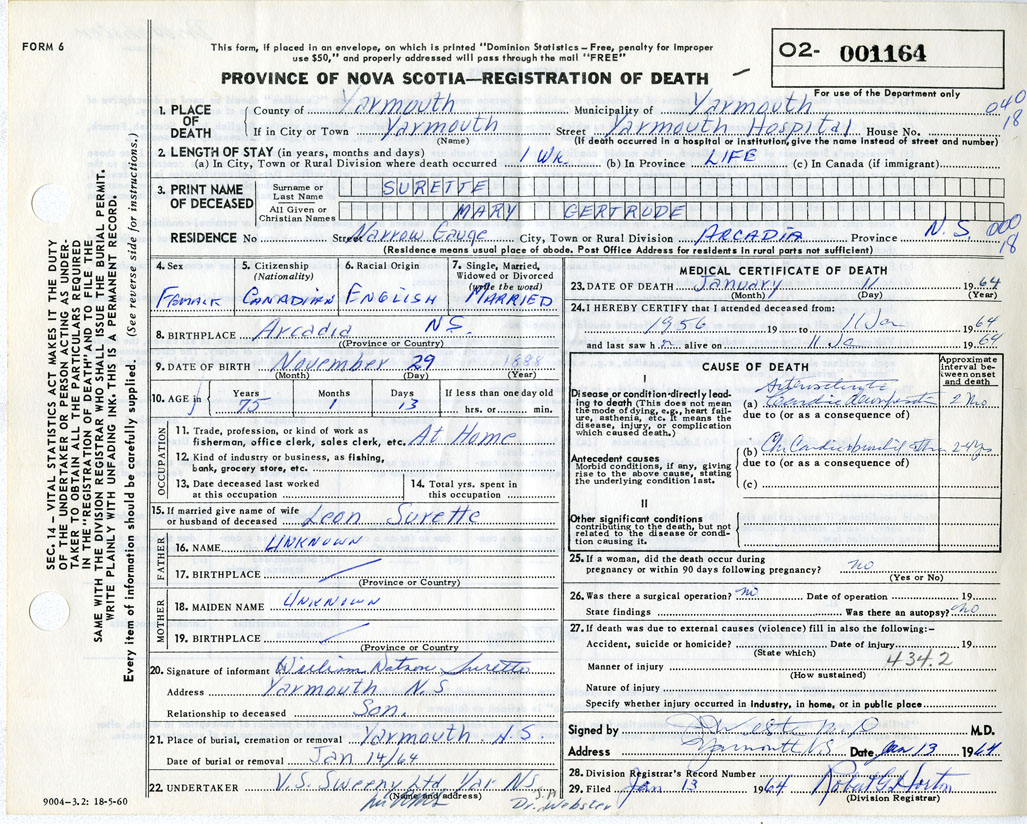 FORM 6
This form, if placed in an envelope, on which is printed "Dominion Statistics – Free, penalty for improper
use $50," and properly addressed will pass through the mail "FREE"
PROVINCE OF NOVA SCOTIA—REGISTRATION OF DEATH
O2- 001164
For use of the Department only
040
18
1. PLACE OF DEATH
County of Yarmouth Municipality of Yarmouth
If in City or Town Yarmouth Street Yarmouth Hospital House No.
(Name) (If death occurred in a hospital or institution, give the name instead of street and number)
2. LENGTH OF STAY (in years, months and days)
(a) In City, Town or Rural Division where death occurred 1 WK. (b) In Province LIFE (c) In Canada (if immigrant)
3. PRINT NAME OF DECEASED
Surname or Last Name SURETTE
All Given or Christian Names MARY GERTRUDE
RESIDENCE No Street Narrow Gauge City, Town or Rural Division ARCADIA Province N.S.
000
18
(Residence means usual place of abode. Post Office Address for residents in rural parts not sufficient)
4. Sex
FEMALE
5. Citizenship
(Nationality)
CANADIAN
6. Racial Origin
ENGLISH
7. Single, Married,
Widowed or Divorced
(write the word)
MARRIED
8. BIRTHPLACE Arcadia N.S.
(Province or Country)
9. DATE OF BIRTH November 29 1888
(Month) (Day) (Year)
10. AGE in
Years Months Days If less than one day old
75 1 13 hrs. or min.
OCCUPATION
11. Trade, profession, or kind of work as
fisherman, office clerk, sales clerk, etc. At Home
12. Kind of industry or business, as fishing,
bank, grocery store, etc.
13. Date deceased last worked
at this occupation
14. Total yrs. spent in
this occupation
15. If married give name of wife
or husband of deceased Leon Surette
FATHER
16. NAME UNKNOWN
17. BIRTHPLACE
(Province or Country)
MOTHER
18. MAIDEN NAME UNKNOWN
19. BIRTHPLACE
(Province or Country)
20. Signature of informant William Surette
Address Yarmouth N.S
Relationship to deceased Son.
21. Place of burial, cremation or removal Yarmouth. N.S.
Date of burial or removal Jan 14/64
22. UNDERTAKER V.S. Sweeny Ltd. Yar N.S.
(Name and address)
Dr. Webster
9004-3.2: 18-5-60
MEDICAL CERTIFICATE OF DEATH
23. DATE OF DEATH January 11 1964
(Month) (Day) (Year)
24. I HEREBY CERTIFY that I attended deceased from:
1956 19 to 11 Jan 1964
and last saw h alive on 11 Ja 1964
CAUSE OF DEATH
Approximate
interval be-
tween onset
and death
I
Disease or condition directly lead-
ing to death (This does not mean
the mode of dying, e.g., heart fail-
ure, asthenia, etc. It means the
disease, injury, or complication
which caused death.)
(a)
due to (or as a consequence of)
Antecedent causes
Morbid conditions, if any, giving
rise to the above cause, stating
the underlying condition last.
(b)
due to (or as a consequence of)
(c)
II
Other significant conditions
contributing to the death, but not
related to the disease or condi-
tion causing it.
25. If a woman, did the death occur during
pregnancy or within 90 days following pregnancy? no
(Yes or No)
26. Was there a surgical operation? no Date of operation 19
State findings Was there an autopsy? no
27. If death was due to external causes (violence) fill in also the following:–
Accident, suicide or homicide? Date of injury 19
(State which)
434.2
Manner of injury
(How sustained)
Nature of injury
Specify whether injury occurred in industry, in home, or in public place
Signed by M.D.
Address Yarmouth N.S Date Jan 13 1964
28. Division Registrar's Record Number
29. Filed Jan 13 1964 Robert G Horton
(Division Registrar)
SEC. 14 – VITAL STATISTICS ACT MAKES IT THE DUTY
OF THE UNDERTAKER OR PERSON ACTING AS UNDER-
TAKER TO OBTAIN ALL THE PARTICULARS REQUIRED
IN THE "REGISTRATION OF DEATH" AND TO FILE THE
SAME WITH THE DIVISION REGISTRAR WHO SHALL ISSUE THE BURIAL PERMIT.
WRITE PLAINLY WITH UNFADING INK. THIS IS A PERMANENT RECORD.
Every item of information should be carefully supplied. (See reverse side for instructions.)